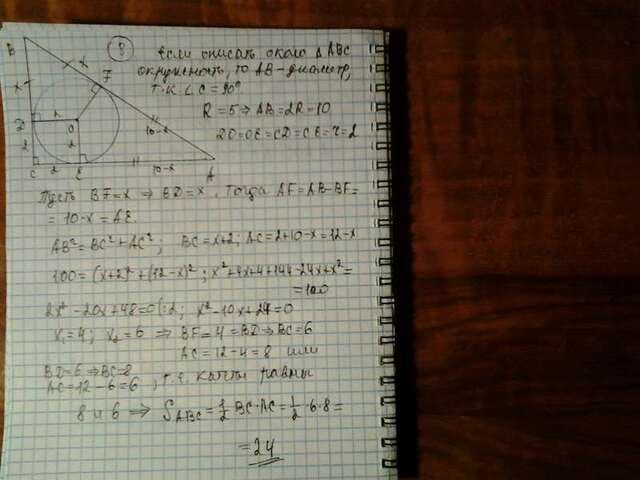 B
8
Если описать около △ABC
x
F
окружность, то AB - диаметр,
т.к ∠C = 90°
x
R = 5 ⇒ AB = 2R = 10
D
O
10-x
OD = OE = CD = CE = r = 2
2
2
C 2 E 10-x A
Пусть BF = x ⇒ BD = x. Тогда AF = AB - BF =
= 10-x = AE.
AB² = BC² + AC²; BC = x+2; AC = 2+10-x = 12-x
100 = (x+2)² + (12-x)²; x²+4x+4+144-24x+x² =
= 100
2x² - 20x + 48 = 0 |:2; x² - 10x + 24 = 0
x₁ = 4; x₂ = 6 ⇒ BF = 4 = BD ⇒ BC = 6
AC = 12 - 4 = 8 или
BD = 6 ⇒ BC = 8
AC = 12 - 6 = 6, т.е. катеты равны
8 и 6 ⇒ S ABC = 1/2 BC · AC = 1/2 · 6 · 8 =
= 24